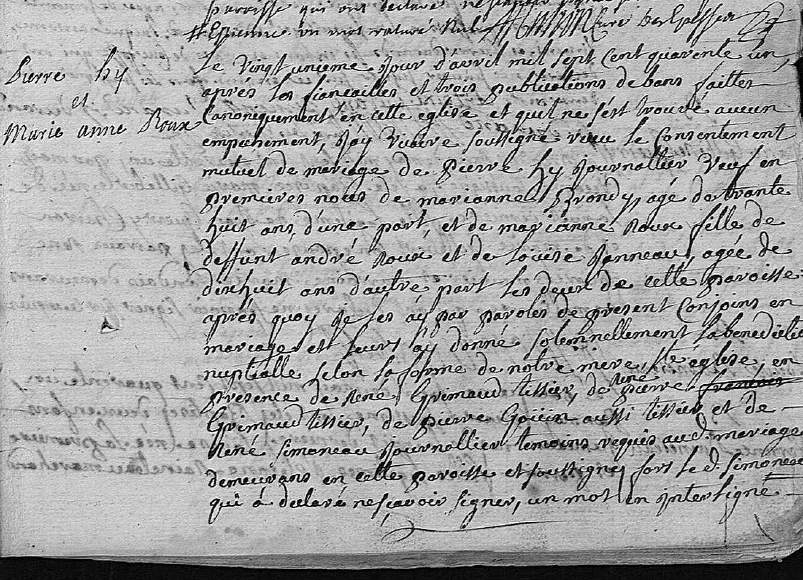 parroisse qui ont
Epienne un mot raturé nul curé Despesses
Pierre hy
et
Marie anne Roux
Le vingt unieme jour d'avril mil sept Cent quarente un
aprés les fiancailles et trois publications de bans faittes
Canoniquement en cette eglise et quil ne s'est trouvé aucun
empechement, J'ay vicaire soussigné receu le Consentement
mutuel de mariage de Pierre hy Journallier veuf en
premieres noces de marianne Brondy agé de trante
huit ans, d'une part, et de marianne Roux fille de
deffunt andré Roux et de Louise Janneau, agée de
dixhuit ans d'autre part les deux de cette paroisse
aprés quoy je les ay par paroles de present Conjoins en
mariage et leurs ay donné solemnellement la benedictio
nuptialle selon la forme de notre mere Ste eglise, en
presence de René Grimaud tissier, de René pierre francois
Grimaud tissier, de pierre Goüin aussi tissier et de
René Simoneau Journallier temoins requis au d. mariage
demeurans en cette paroisse et soussignes fors le d. Simoneau
qui a declaré ne scavoir signer, un mot en Intersigne